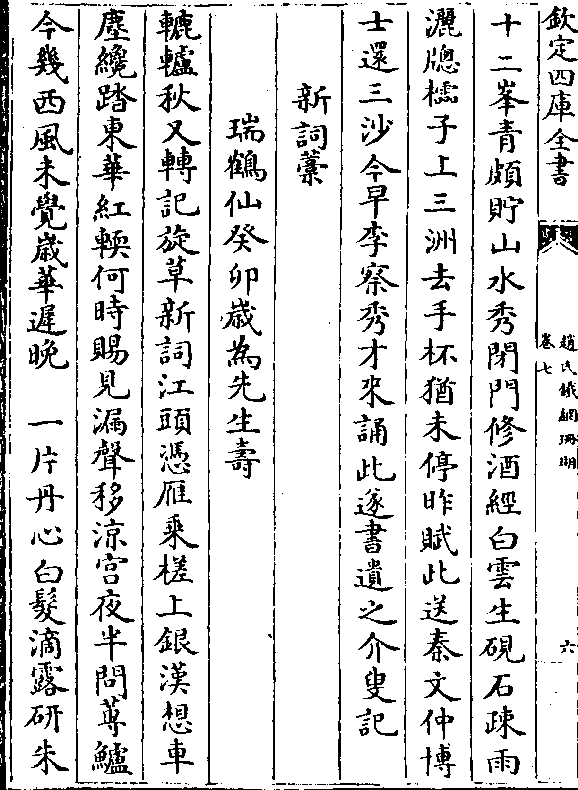 欽定四庫全書
趙氏鐵網珊瑚
卷七
六
十二峯青頗貯山水秀閉門修酒經白雲生硯石疎雨
灑牕櫺子上三洲去手杯猶未停昨賦此送秦文仲博
士還三沙今早李察秀才來誦此遂書遺之介叟記
新詞藁
瑞鶴仙癸卯歲為先生壽
轆轤秋又轉記旋草新詞江頭憑雁乘槎上銀漢想車
塵纔踏東華紅輭何時賜見漏聲移涼宫夜半問蓴鱸
今幾西風未覺歲華遲晚　一片丹心白髮滴露研朱